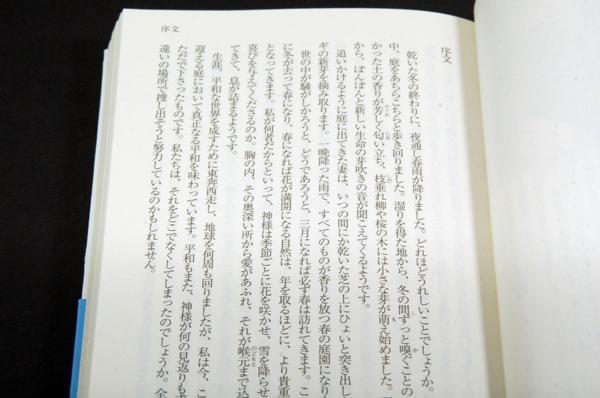 序文
序文
乾いた冬の終わりに、夜通し春雨が降りました。どれほどうれしいことでしょうか。
中、庭をあちらこちらと歩き回りました。湿りを得た地から、冬の間ずっと嗅ぐことの
かった土の香りが芳しく匂い立ち、枝垂れ柳や桜の木には小さな芽が萌え始めました。
から、ぽんぽんと新しい生命の芽吹きの音が聞こえてくるようです。
追いかけるように庭に出てきた妻は、いつの間にか乾いた芝の上にひょいと突き出し
ギの新芽を摘み取ります。一晩降った雨で、すべてのものが香りを放つ春の庭園になり
世の中が騒がしかろうと、どうであろうと、三月になれば必ず春は訪れてきます。こ
に冬が去って春になり、春になれば花が満開になる自然は、年を取るほどに、より貴重
となってきます。私が何者だからといって、神様は季節ごとに花を咲かせ、雪を降らせ
喜びを与えてくださるのか。胸の内、その奥深い所から愛があふれ、それが喉元まで込
てきて、息が詰まるようです。
生涯、平和な世界を成すために東奔西走し、地球を何周も回りましたが、私は今、こ
迎える庭において真正なる平和を味わっています。平和もまた、神様が何の見返りもず
ただで下さったものです。私たちは、それをどこでなくしてしまったのでしょうか。全
違いの場所で捜し出そうと努力しているのかもしれません。